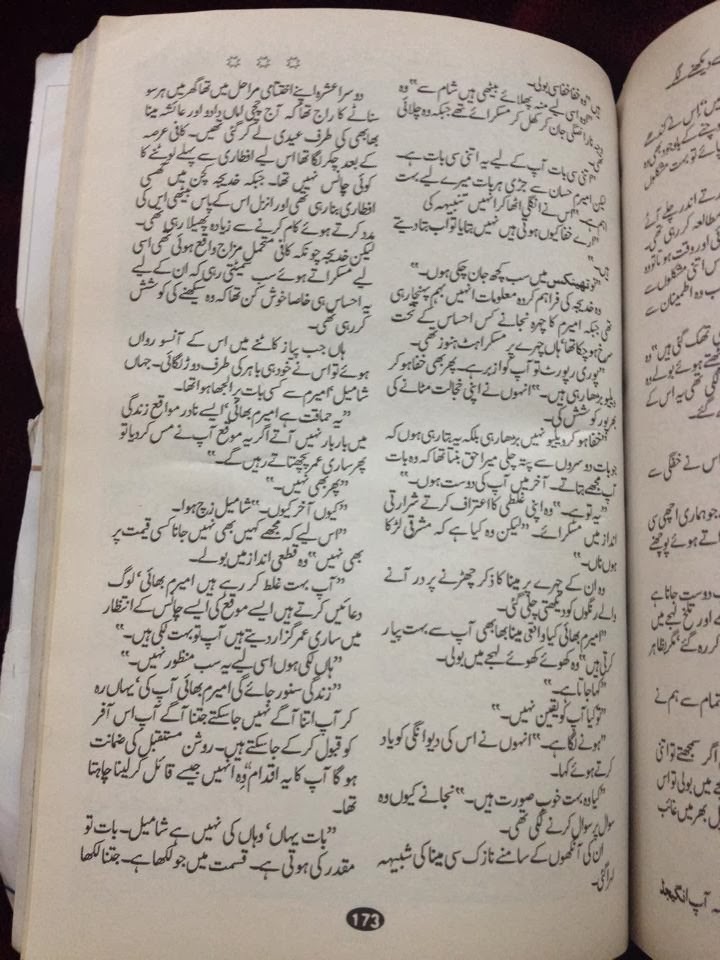 ہیں۔" وہ خفا خفا سی بولی۔
"وہ اسی لیے منہ پھلائے بیٹھی ہیں شام سے" وہ
ناراضگی جان کر کھل کر مسکرائے تھے جبکہ وہ چلائی
تھی۔
"اتنی سی بات آپ کے لیے یہ اتنی سی بات ہے۔
لیکن امیرم حسان سے جڑی ہر بات میرے لیے بہت
اہم ہے۔" اس نے انگلی اٹھا کر انہیں تنبیہہ کی
"ارے خفا کیوں ہوتی ہیں نہیں بتایا تو اب بتا دیتے
ہیں۔"
"نو تھینکس میں سب کچھ جان چکی ہوں۔"
وہ خدیجہ کی فراہم کردہ معلومات انہیں بہم پہنچا رہی
تھی جبکہ امیرم کا چہرہ نجانے کس احساس کے تحت
سرخ ہو چکا تھا ہاں چہرے پر مسکراہٹ ہنوز تھی۔
"پوری رپورٹ تو آپ کو از بر ہے۔ پھر بھی خفا ہو کر
ویلیو بڑھا رہی ہیں۔" انہوں نے اپنی خجالت مٹانے کی
بھرپور کوشش کی۔
"خفا ہو کر ویلیو نہیں بڑھا رہی بلکہ یہ بتا رہی ہوں کہ
جو بات دوسروں سے پتہ چلی میرا حق بنتا تھا کہ وہ بات
آپ مجھے بتاتے۔ آخر میں آپ کی دوست ہوں۔"
"یہ تو ہے۔" وہ اپنی غلطی کا اعتراف کرتے شرارتی
انداز میں مسکرائے۔ "لیکن وہ کیا ہے کہ مشرقی لڑکا
ہوں ناں۔"
وہ ان کے چہرے پر مینا کا ذکر چھڑنے پر در آنے
والے رنگوں کو دیکھتی چلی گئی۔
"امیرم بھائی کیا واقعی مینا بھابھی آپ سے بہت پیار
کرتی ہیں" وہ کھوئے کھوئے لہجے میں بولی۔
"کہا جاتا ہے۔"
"تو کیا آپ کو یقین نہیں۔"
"ہونے لگا ہے۔" انہوں نے اس کی دیوانگی کو یاد
کرتے ہوئے کہا۔
"کیا وہ بہت خوب صورت ہیں۔" نجانے کیوں وہ
سوال پر سوال کرنے لگی تھی۔
ان کی آنکھوں کے سامنے نازک سی مینا کی شبیہہ
لہرا گئی۔
دوسرا عشرہ اپنے اختتامی مراحل میں تھا گھر میں ہر سو
سناٹے کا راج تھا کہ آج چچی اماں دادو اور عائشہ مینا
بھابھی کی طرف عیدی لے کر گئی تھیں۔ کافی عرصہ
کے بعد چکر لگا تھا اس لیے افطاری سے پہلے لوٹنے کا
کوئی چانس نہیں تھا۔ جبکہ خدیجہ کچن میں گھسی
افطاری بنا رہی تھی اور انزل اس کے پاس بیٹھی اس کی
مدد کرتے ہوئے کام کرنے سے زیادہ پھیلا رہی تھی۔
لیکن خدیجہ چونکہ کافی متحمل مزاج واقع ہوئی تھی اسی
لیے مسکراتے ہوئے سب سمیٹتی رہی کہ ان کے لیے
یہ احساس ہی خاصا خوش کن تھا کہ وہ سیکھنے کی کوشش
کر رہی تھی۔
ہاں جب پیاز کاٹنے میں اس کے آنسو رواں
ہوئے تو اس نے خود ہی باہر کی طرف دوڑ لگائی۔ جہاں
شامیل، امیرم سے کسی بات پر الجھا ہوا تھا۔
"یہ حماقت ہے امیرم بھائی، ایسے نادر مواقع زندگی
میں بار بار نہیں آتے اگر یہ موقع آپ نے مس کر دیا تو
پھر ساری عمر پچھتاتے رہیں گے۔"
"پھر بھی نہیں۔"
"کیوں آخر کیوں۔" شامیل زچ ہوا۔
"اس لیے کہ مجھے کہیں بھی نہیں جانا کسی قیمت پر
بھی نہیں" وہ قطعی انداز میں بولے۔
"آپ بہت غلط کر رہے ہیں امیرم بھائی، لوگ
دعائیں کرتے ہیں ایسے موقع کی ایسے چانس کے انتظار
میں ساری عمر گزار دیتے ہیں آپ تو بہت لکی ہیں۔"
"ہاں لکی ہوں اسی لیے یہ سب منظور نہیں۔"
"زندگی سنور جائے گی امیرم بھائی آپ کی، یہاں رہ
کر آپ اتنا آگے نہیں جا سکتے جتنا آگے آپ اس آفر
کو قبول کر کے جا سکتے ہیں۔ روشن مستقبل کی ضمانت
ہو گا آپ کا یہ اقدام" وہ انہیں جیسے قائل کر لینا چاہتا
تھا۔
"بات یہاں، وہاں کی نہیں ہے شامیل۔ بات تو
مقدر کی ہوتی ہے۔ قسمت میں جو لکھا ہے۔ جتنا لکھا
173